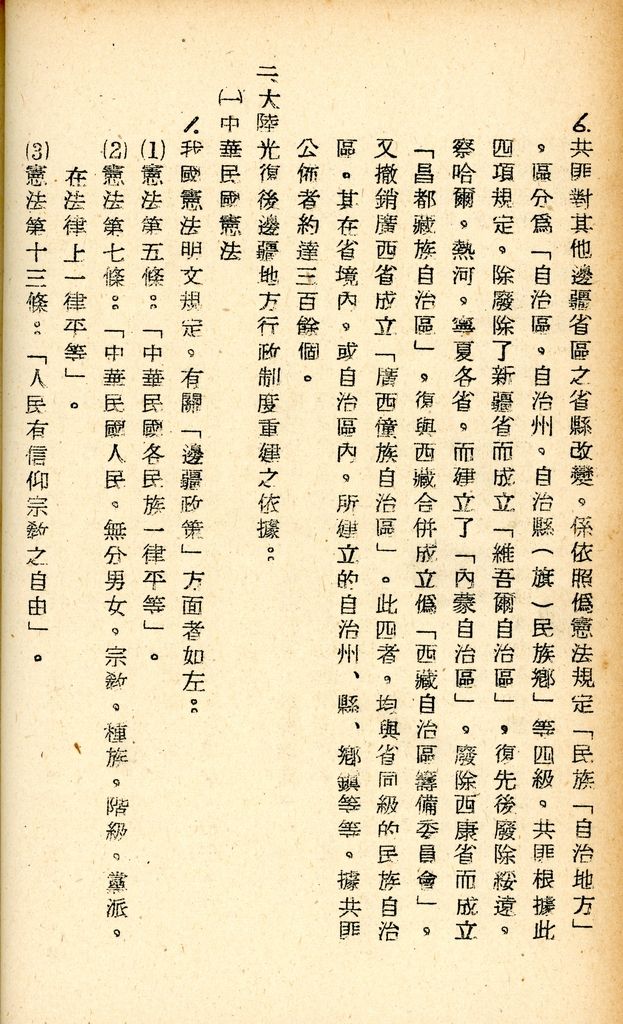 6.共匪對其他邊疆省區之省縣改變。係依照僞憲法規定「民族「自治地方」
。區分爲「自治區。自治州。自治縣(旗)民族鄉」等四級。共匪根據此
四項規定。除廢除了新疆省而成立「維吾爾自治區」。復先後廢除綏遠。
察哈爾。熱河。寧夏各省。而建立了「內蒙自治區」。廢除西康省而成立
「昌都藏族自治區」。復與西藏合併成立僞「西藏自治區籌備委員會」。
又撤銷廣西省成立「廣西僮族自治區」。此四者。均與省同級的民族自治
區。其在省境內。或自治區內。所建立的自治州、縣、鄉鎮等等。據共匪
公佈者約達三百餘個。
二、大陸光復後邊疆地方行政制度重建之依據:。
㈠中華民國憲法
1.我國憲法明文規定。有關「邊疆政策」方面者如左:。
(1)憲法第五條:。「中華民國各民族一律平等」。
(2)憲法第七條:。「中華民國人民。無分男女。宗教。種族。階級。黨派。
在法律上一律平等」。
(3)憲法第十三條:。「人民有信仰宗教之自由」。